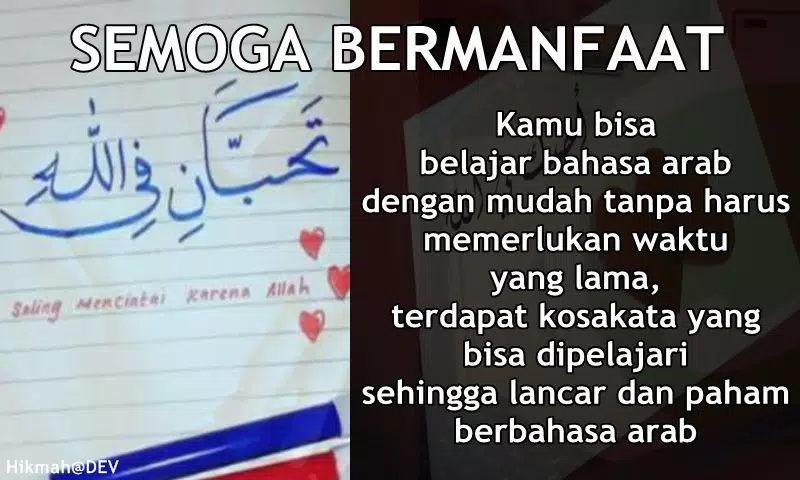 SEMOGA BERMANFAAT
تَحَبَّانِ فِي اللّٰهِ
Saling Mencintai Karena Allah
Kamu bisa
belajar bahasa arab
dengan mudah tanpa harus
memerlukan waktu
yang lama,
terdapat kosakata yang
bisa dipelajari
sehingga lancar dan paham
berbahasa arab
Hikmah@DEV